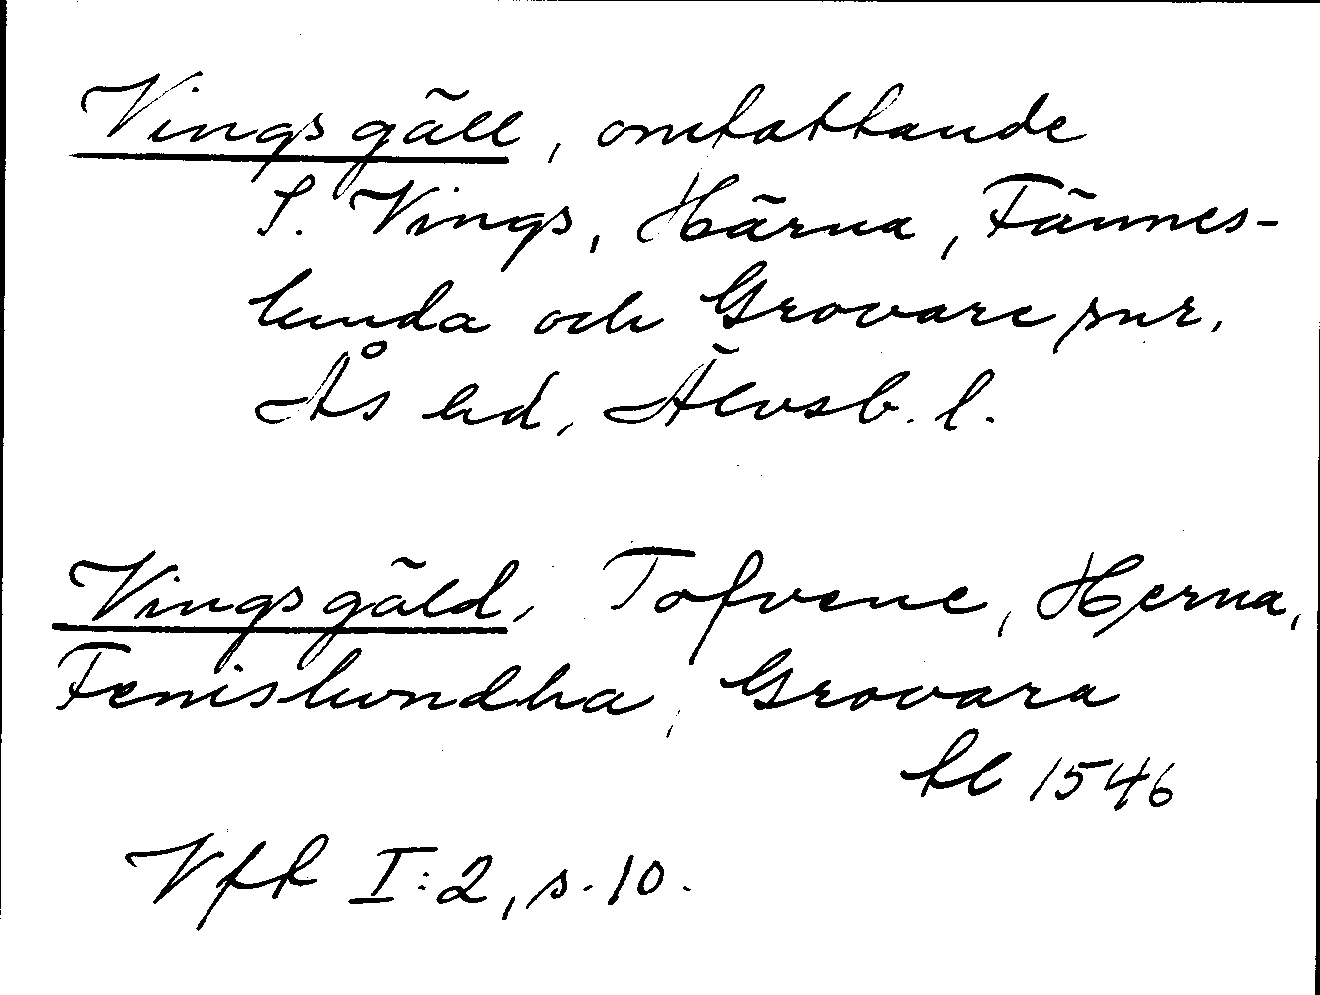 Vings gäll, omfattande
S. Vings, Härna, Fännes-
lunda och Grovare snr,
Ås hd, Älvsb. l.
Vings gäld, Tofvene, Herna,
Fenislundha, Grovara
1546
Vfk I:2, s. 10.